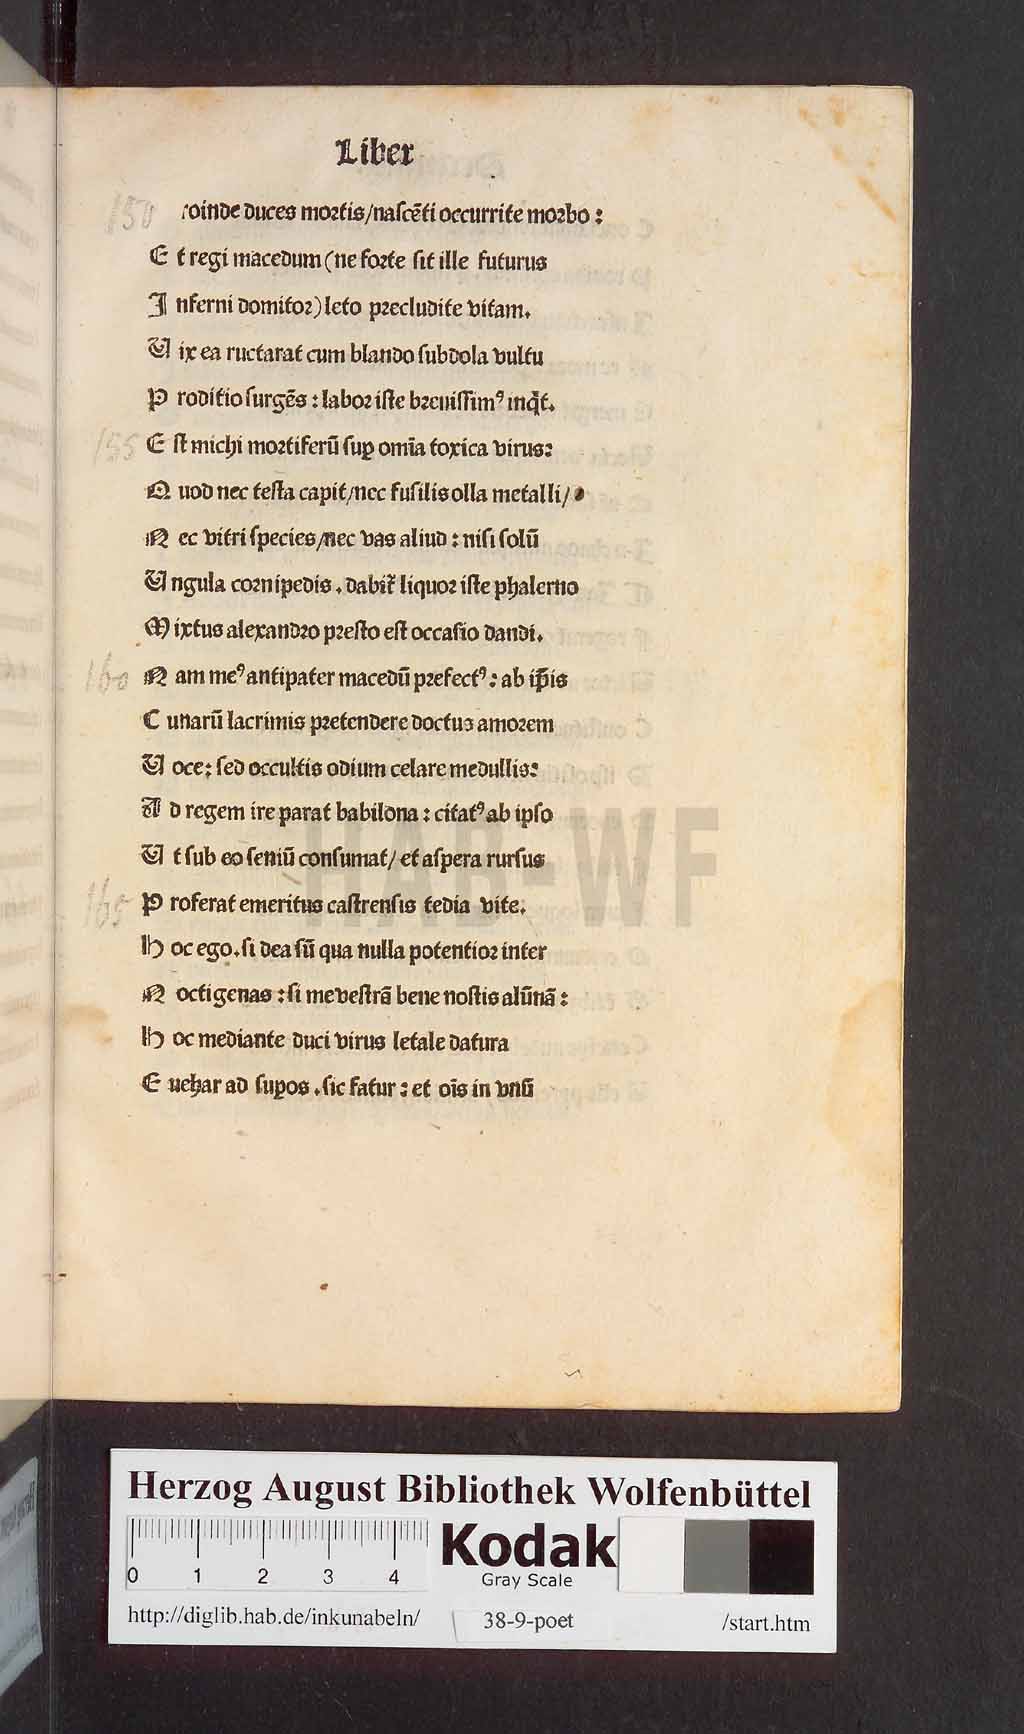 Liber
150 roinde duces mortis/nascēti occurrite morbo:
E t regi macedum (ne forte sit ille futurus
I nferni domitor) leto precludite vitam.
V ix ea ructarat cum blando subdola vultu
P roditio surgēs: labor iste breuissimꝰ inq̄t.
155 E st michi mortiferū suꝑ omīa toxica virus:
Q uod nec testa capit/nec fusilis olla metalli/
N ec vitri species/nec vas aliud: nisi solū
V ngula cornipedis. dabit᷑ liquor iste phalerno
M ixtus alexandro presto est occasio dandi.
160 N am meꝰ antipater macedū prefectꝰ: ab ip̄is
C unarū lacrimis pretendere doctus amorem
V oce: sed occultis odium celare medullis:
A d regem ire parat babilona: citatꝰ ab ipso
V t sub eo seniū consumat/et aspera rursus
165 P roferat emeritus castrensis tedia vite.
H oc ego. si dea sū qua nulla potentior inter
N octigenas: si me vestrā bene nostis alūnā:
H oc mediante duci virus letale datura
E uehar ad suꝑos. sic fatur: et oīs in vnū
HAB-WF
Herzog August Bibliothek Wolfenbüttel
0 1 2 3 4
Kodak
Gray Scale
http://diglib.hab.de/inkunabeln/ 38-9-poet /start.htm